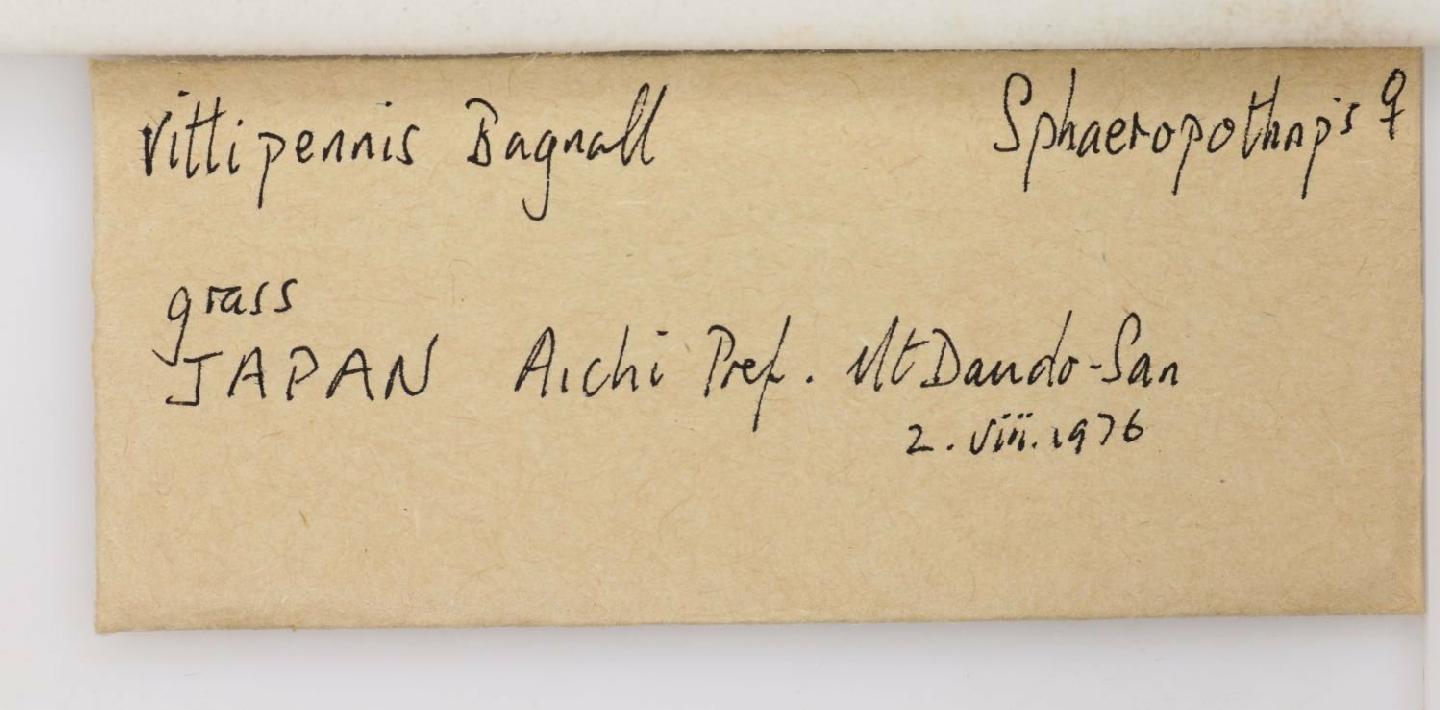 vittipennis Bagnall Sphaeropothrips ♀
grass
JAPAN Aichi Pref. Mt Dando-San
2.viii.1976